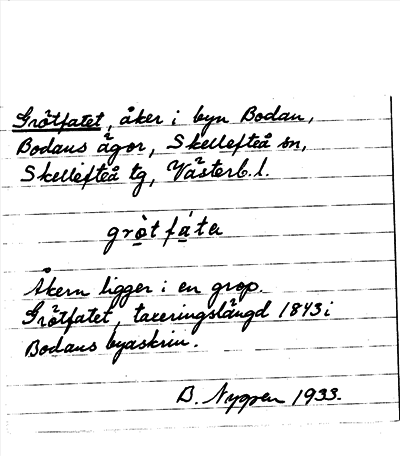 Grötfatet, åker i byn Bodan,
Bodans ägor, Skellefteå sn,
Skellefteå tg, Västerb. l.
grò̱tfá̱ta
Åkern ligger i en grop.
Grötfatet, taxeringslängd 1843 i
Bodans byaskrin.
B. Nygren 1933.